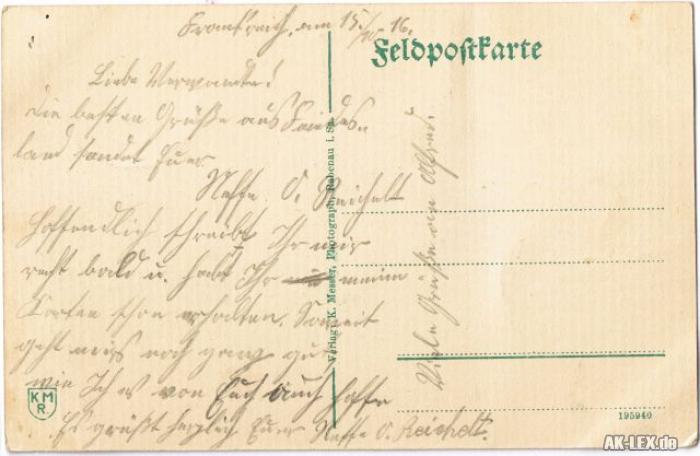 Frankreich, am 15./10. 16.
Feldpostkarte
Liebe Verwandte!
Die besten Grüße aus Feindes-
land sendet Euer
Neffe O. Reichelt
Hoffentlich schreibt Ihr mir
recht bald u. habt Ihr meine
Karten schon erhalten. Soweit
geht mirs noch ganz gut
wie Ich es von Euch auch hoffe
Es grüßt herzlich Euer Neffe O. Reichelt.
Viele Grüße an Alfred.
Verlag: K. Messer, Photograph, Rabenau i. Sa.
KMR
195940
AK-LEX.de